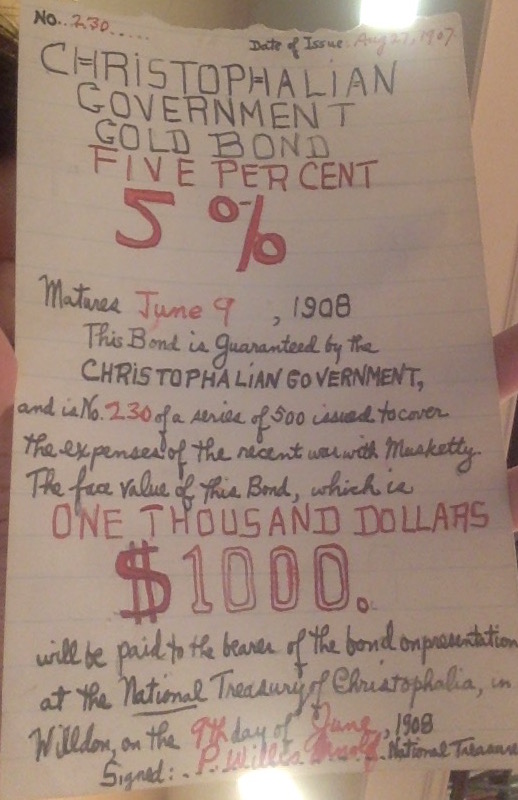 No. 230.....
Date of Issue: Aug 27, 1907.
CHRISTOPHALIAN
GOVERNMENT
GOLD BOND
FIVE PER CENT
5%
Matures June 9, 1908
This Bond is Guaranteed by the
CHRISTOPHALIAN GOVERNMENT,
and is No. 230 of a series of 500 issued to cover
the expenses of the recent war with Musketty.
The face value of this Bond, which is
ONE THOUSAND DOLLARS
$1000.
will be paid to the bearer of the bond on presentation
at the National Treasury of Christophalia, in
Willdon, on the 9th day of June, 1908
Signed: P. Willis National Treasure